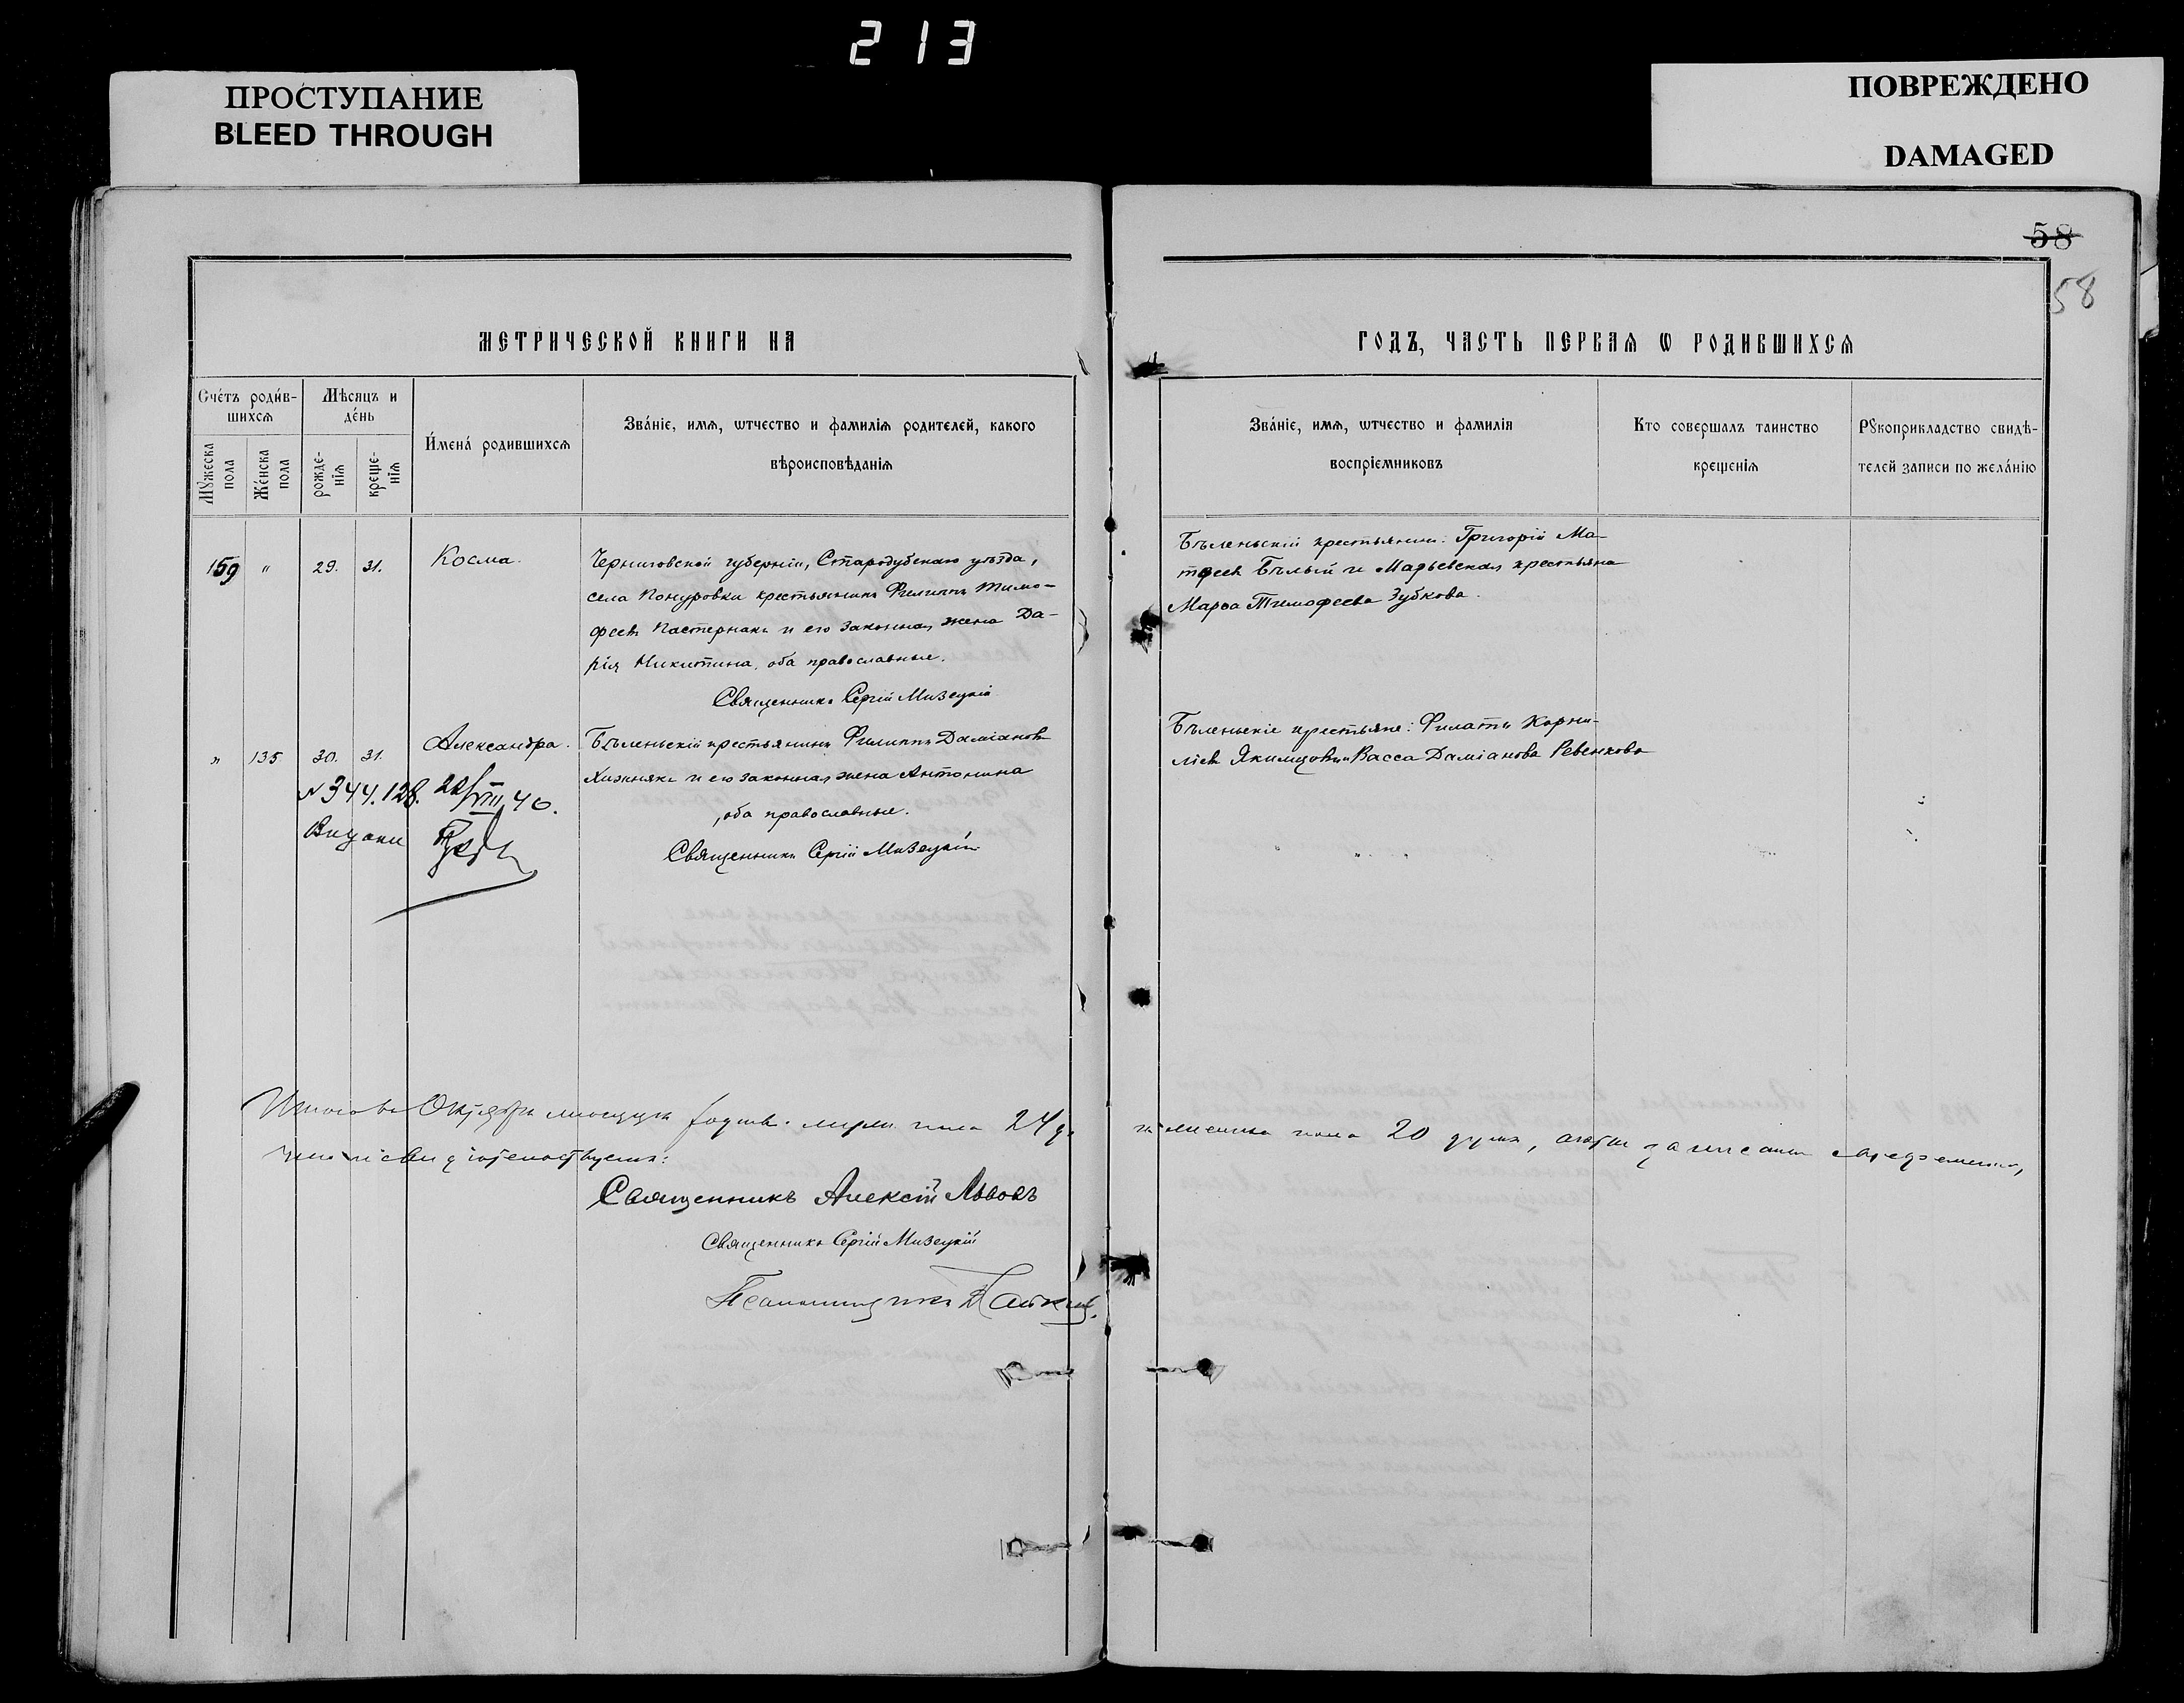 213
ПРОСТУПАНИЕ
BLEED THROUGH
ПОВРЕЖДЕНО
DAMAGED
58
58
МЕТРИЧЕСКОЙ КНИГИ НА
ГОДЪ, ЧАСТЬ ПЕРВАѦ Ѡ РОДИВШИХСѦ
Сче́тъ роди́в-
шихсѧ
Мѣсяцъ и
де́нь
Мꙋжеска
пола
Же́нска
пола
рожде-
нїѧ
креще-
нїѧ
И́мена́ родившихсѧ
Зва́нїе, имѧ, ѡтчество и фамилїѧ родителей, какого
вѣроисповѣданїѧ
Зва́нїе, имѧ, ѡтчество и фамилїѧ
воспрїемниковъ
Кто совершалъ таинство
крещенїѧ
Рꙋкоприкладство свидѣ-
телей записи по жела́нїю
159 " 29. 31. Косма.
Черниговской губерніи, Стародубскаго уѣзда,
села Понуровки крестьянинъ Филиппъ Тимо-
феевъ Пастернакъ и его законная жена Да-
рія Никитина, оба православные.
Священникъ Сергій Мизецкій
Бѣленьскій крестьянинъ: Григорій Ма-
тфеевъ Бѣлый и крестьянка
Марѳа Тимофеева Зубкова.
" 135 30. 31. Александра.
Бѣленьскій крестьянинъ Филиппъ Даміановъ
Хижнякъ и его законная жена Антонина
, оба православные.
Священникъ Сергій Мизецкій
Бѣленьскіе крестьяне: Филатъ Корни-
ліевъ и Васса Даміанова Ревенкова
№ 344.128. 22/VIII 40.
Итого въ Октябрѣ мѣсяцѣ родив. муж. пола 24 д.
и женска пола 20 душъ, записаны своевременно,
чѣмъ и свидѣтельствуемъ:
Священникъ Алексій Львовъ
Священникъ Сергій Мизецкій
Псаломщикъ